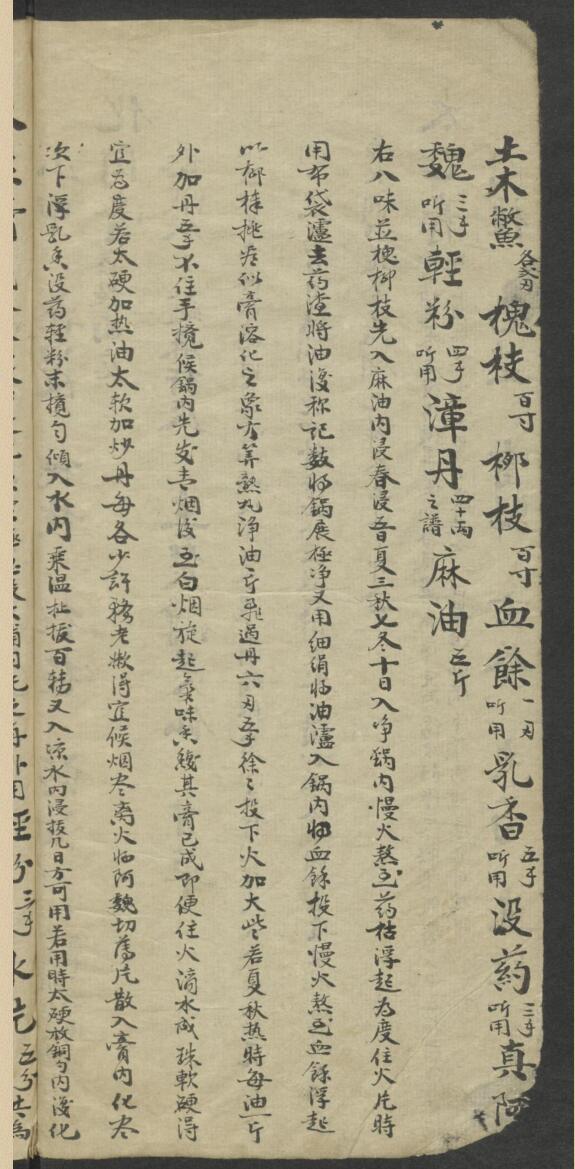 土木鱉各二刃 槐枝百寸 柳枝百寸 血餘一刃听用 乳香五子听用 没药三子听用 真阿
魏三子听用 輕粉四子听用 漳丹四十両之譜 麻油五斤
右八味並槐柳枝先入麻油內浸春浸五日夏三秋七冬十日入净鍋內慢火熬至药枯浮起为度住火片時
用布袋濾去药渣將油復称記数將鍋展極净又用细绢將油濾入鍋內將血餘投下慢火熬至血餘浮起
以柳棒挑岁似膏溶化之象方算熬凡淨油一斤飛過丹六刃五子徐々投下火加大些若夏秋热時每油一斤
外加丹五子不住手攪候鍋內先发青烟後至白烟旋起氣味香馥其膏已成即便住火滴水成珠軟硬得
宜為度若太硬加热油太软加炒丹每各少許務老嫩得宜候烟尽离火將阿魏切薄片散入膏內化尽
次下浮乳香没药轻粉末攪匀傾入水內乘温扯拔百转又入凉水內浸拔几日方可用若用時太硬放铜勺內復化
輕粉三子 火 五分共為